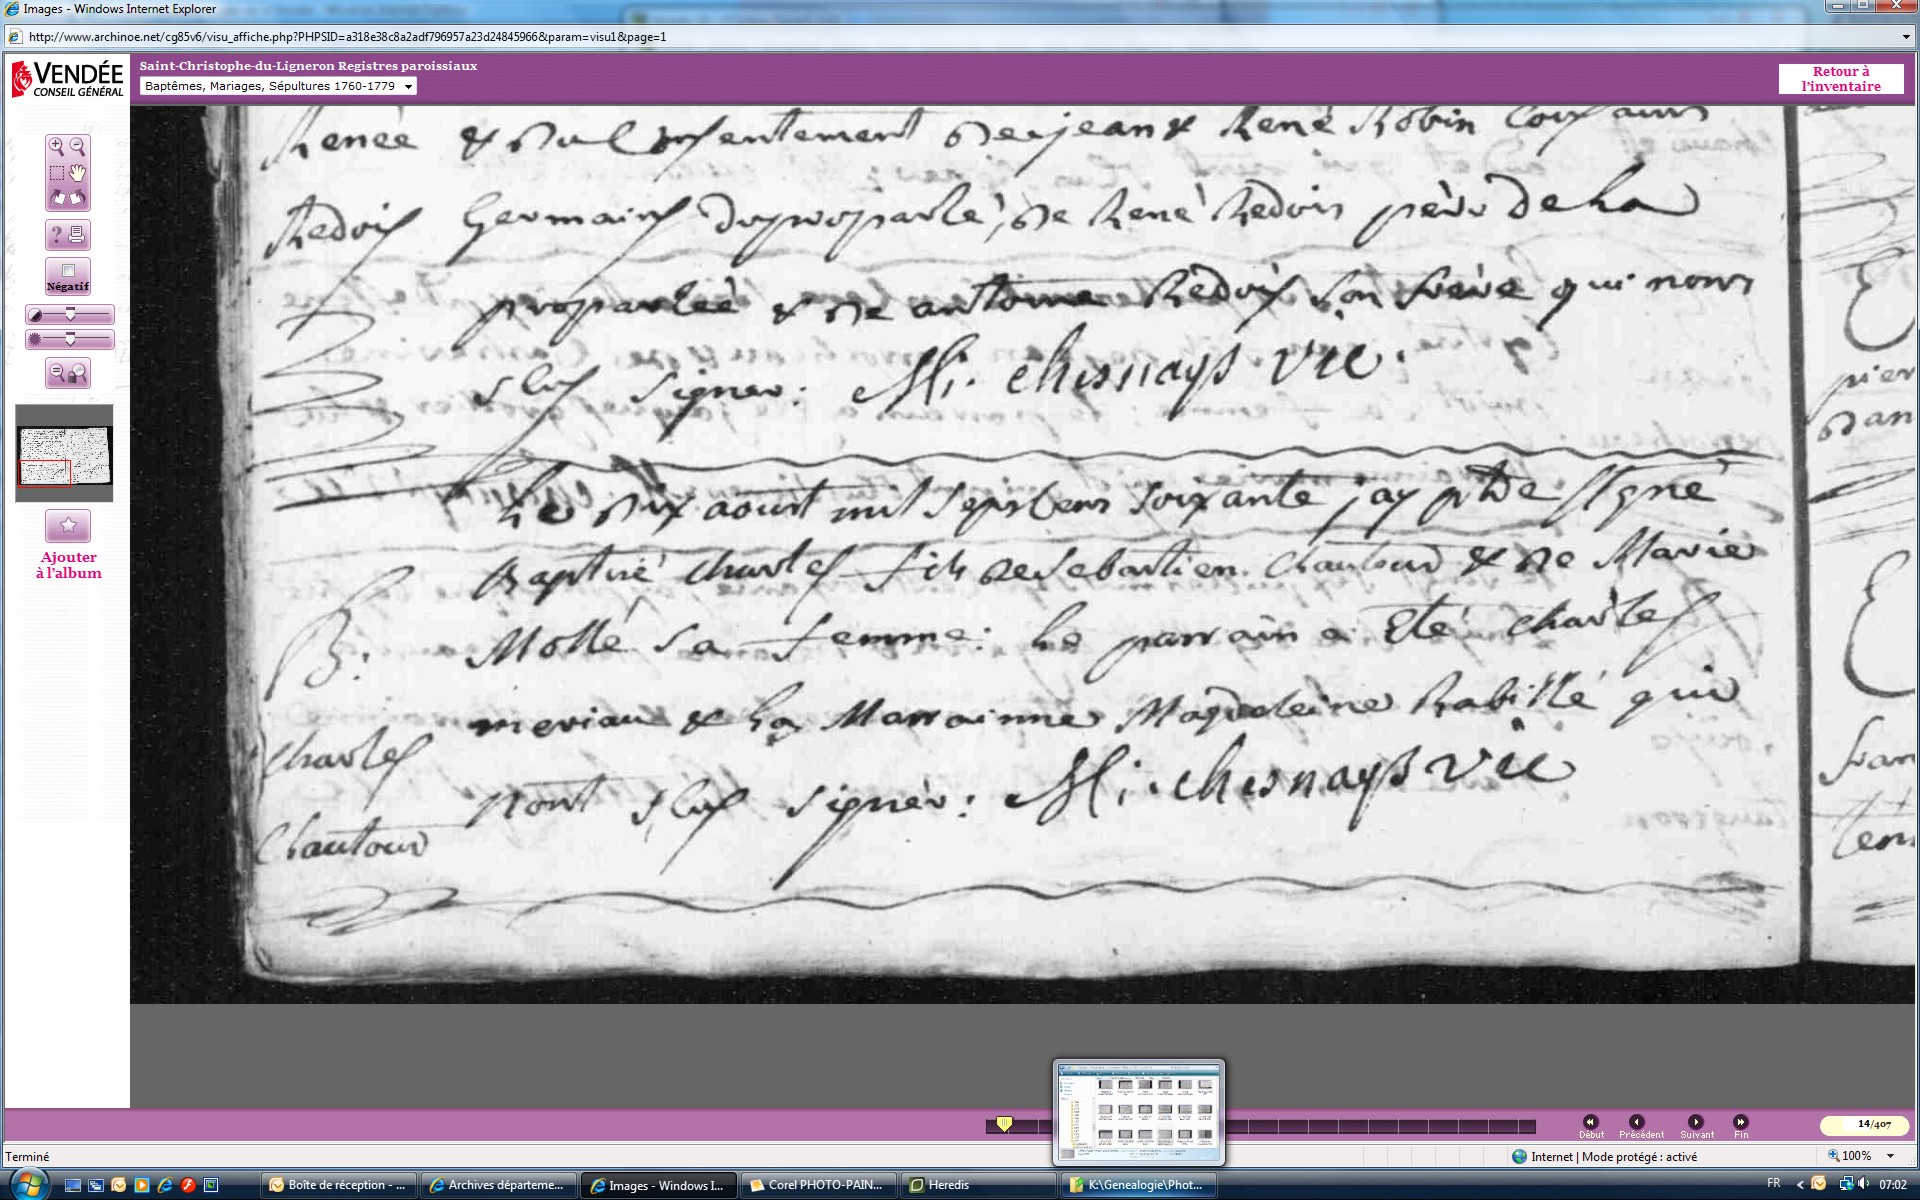 Images - Windows Internet Explorer
http://www.archinoe.net/cg85v6/visu_affiche.php?PHPSID=a318e38c8a2adf796957a23d24845966&param=visu1&page=1
VENDÉE
CONSEIL GÉNÉRAL
Saint-Christophe-du-Ligneron Registres paroissiaux
Baptêmes, Mariages, Sépultures 1760-1779
Retour à
l'inventaire
Négatif
Ajouter
à l'album
Renée & du Consentement de jean & René Robin
Redois germains du proparlé, de René Redois père de La
proparlée & de antoine Redois son frère qui nont
sçus signer : Mi. chesnays vic.
Le dix aoust mil sept cens soixante jay ptre
Baptisé charles fils de Sebastien Chautour & de Marie
B: Mollé sa femme: Le parrain a Eté charles
meriau & La Marrainne Magdeleine Rabillé qui
charles
nont sçus signer : Mi. chesnays vic
Chautour
Début Précédent Suivant Fin
14/407
Terminé
Internet | Mode protégé : activé
100%
Boîte de réception - ...
Archives départeme...
Images - Windows I...
Corel PHOTO-PAIN...
Heredis
K:\Genealogie\Phot...
FR
07:02